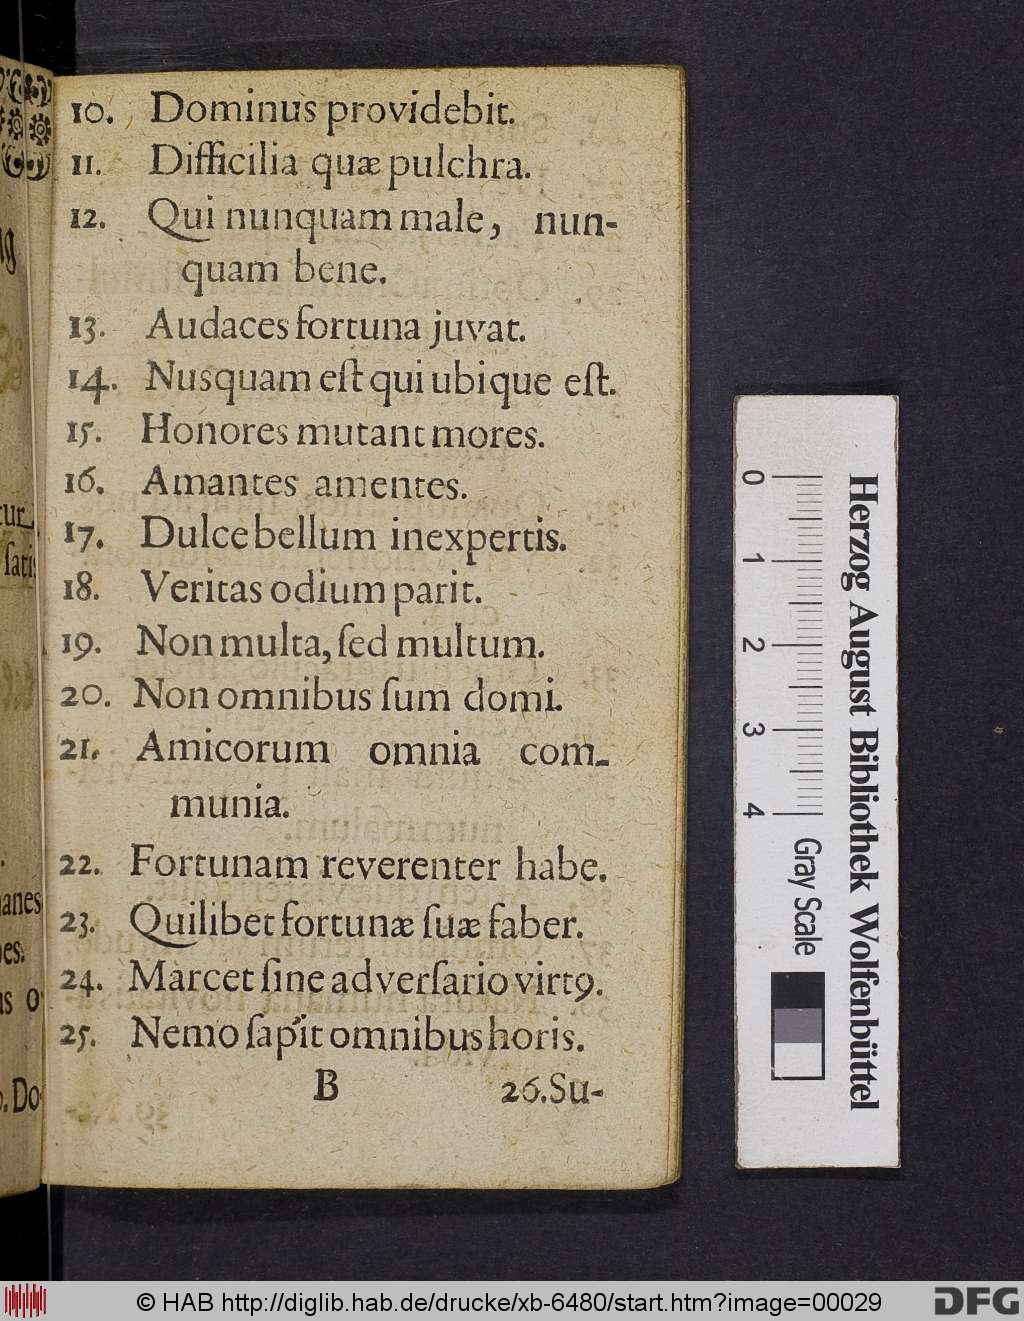 10. Dominus providebit.
11. Difficilia quæ pulchra.
12. Qui nunquam male, nun-
quam bene.
13. Audaces fortuna juvat.
14. Nusquam eſt qui ubique eſt.
15. Honores mutant mores.
16. Amantes amentes.
17. Dulce bellum inexpertis.
18. Veritas odium parit.
19. Non multa, ſed multum.
20. Non omnibus ſum domi.
21. Amicorum omnia com-
munia.
22. Fortunam reverenter habe.
23. Quilibet fortunæ ſuæ faber.
24. Marcet ſine adverſario virtꝰ.
25. Nemo ſapit omnibus horis.
B 26. Su-
Herzog August Bibliothek Wolfenbüttel
0 1 2 3 4 Gray Scale
© HAB http://diglib.hab.de/drucke/xb-6480/start.htm?image=00029
DFG